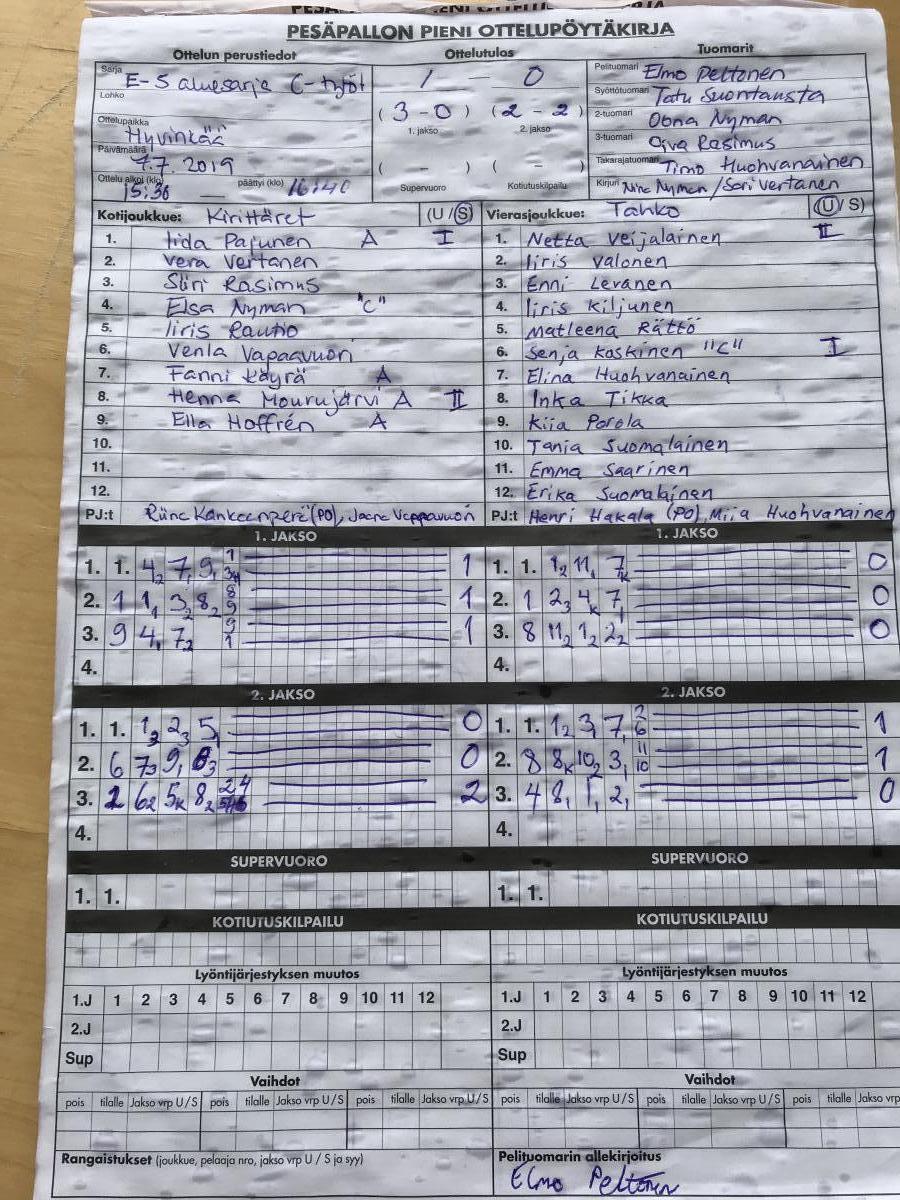 PESÄPALLON PIENI OTTELUPÖYTÄKIRJA
Ottelun perustiedot
Ottelutulos
Tuomarit
Sarja E-S aluesarja C-tytöt
Lohko
Ottelupaikka Hyvinkää
Päivämäärä 7.7.2019
Ottelu alkoi (klo) 15:30 päättyi (klo) 16:40
1 — 0
(3 - 0) (2 - 2)
1. jakso 2. jakso
( - ) ( - )
Supervuoro Kotiutuskilpailu
Pelituomari Elmo Peltonen
Syöttötuomari Tatu Suontausta
2-tuomari Oona Nyman
3-tuomari Oiva Rasimus
Takarajatuomari Timo Huohvanainen
Kirjuri Nina Nyman / Sari Vertanen
Kotijoukkue: Kirittäret (U/S)
1. Iida Pajunen A I
2. Vera Vertanen
3. Siiri Rasimus
4. Elsa Nyman "C"
5. Iiris Rautio
6. Venla Vapaavuori
7. Fanni Käyrä A
8. Henna Mourujärvi A II
9. Ella Hoffrén A
10.
11.
12.
PJ:t (PO),
Vierasjoukkue: Tahko (U/S)
1. Netta Veijalainen II
2. Iiris Valonen
3. Enni Levanen
4. Iiris Kiljunen
5. Matleena Rättö
6. Senja Koskinen "C" I
7. Elina Huohvanainen
8. Inka Tikka
9. Kiia Porola
10. Tania Suomalainen
11. Emma Saarinen
12. Erika Suomalainen
PJ:t Henri Hakala (PO), Miia Huohvanainen
1. JAKSO
1. 1. 42 7, 9, 1
2. 1 1, 32 82 8 9 1
3. 9 4, 72 9 1 1
4.
1. JAKSO
1. 1. 12 11, 7k 0
2. 1 23 4k 7, 0
3. 8 112 12 22 0
4.
2. JAKSO
1. 1. 12 23 5, 0
2. 6 73 9, 0
3. 62 5k 82 2
4.
2. JAKSO
1. 1. 12 3, 7, 2 6 1
2. 8 8k 102 3, 11 10 1
3. 4 8, 1, 2, 0
4.
SUPERVUORO
1. 1.
SUPERVUORO
1. 1.
KOTIUTUSKILPAILU
KOTIUTUSKILPAILU
Lyöntijärjestyksen muutos
1.J 1 2 3 4 5 6 7 8 9 10 11 12
2.J
Sup
Lyöntijärjestyksen muutos
1.J 1 2 3 4 5 6 7 8 9 10 11 12
2.J
Sup
Vaihdot
pois tilalle Jakso vrp U/S pois tilalle Jakso vrp U/S pois tilalle Jakso vrp U/S
Vaihdot
pois tilalle Jakso vrp U/S pois tilalle Jakso vrp U/S pois tilalle Jakso vrp
Rangaistukset (joukkue, pelaaja nro, jakso vrp U / S ja syy)
Pelituomarin allekirjoitus
Elmo Peltonen